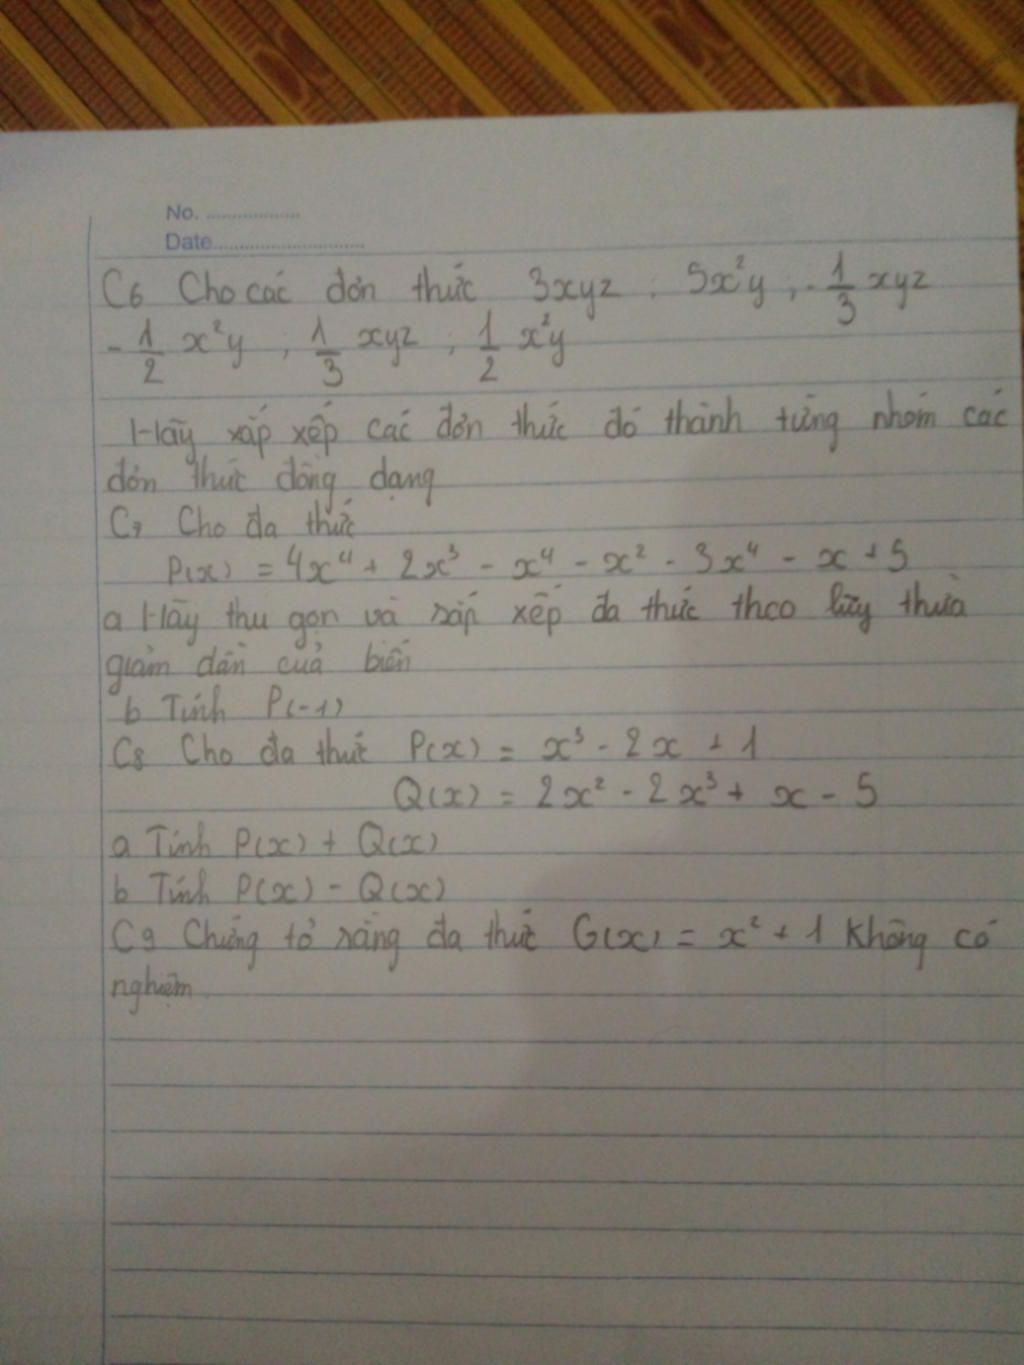 No. ..................
Date............................
C6 Cho các đơn thức 3xyz ; 5x²y ; -1/3 xyz
-1/2 x²y ; 1/3 xyz ; 1/2 x²y
Hãy xắp xếp các đơn thức đó thành từng nhóm các
đơn thức đồng dạng
C7 Cho đa thức
P(x) = 4x⁴ + 2x³ - x⁴ - x² - 3x⁴ - x + 5
a Hãy thu gọn và sắp xếp đa thức theo lũy thừa
giảm dần của biến
b Tính P(-1)
C8 Cho đa thức P(x) = x³ - 2x + 1
Q(x) = 2x² - 2x³ + x - 5
a Tính P(x) + Q(x)
b Tính P(x) - Q(x)
C9 Chứng tỏ rằng đa thức G(x) = x² + 1 không có
nghiệm